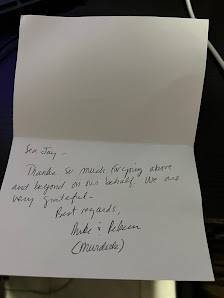 Thanks so much for going above
and beyond on our behalf. We are
very grateful.
Best regards,
Mike &